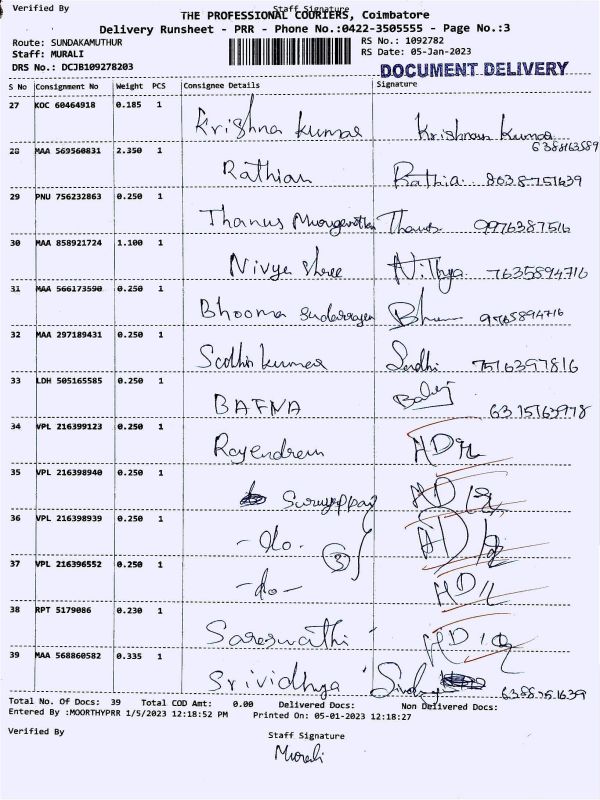 Verified By Staff Signature
THE PROFESSIONAL COURIERS, Coimbatore
Delivery Runsheet - PRR - Phone No.:0422-3505555 - Page No.:3
Route: SUNDAKAMUTHUR RS No.: 1092782
Staff: MURALI RS Date: 05-Jan-2023
DRS No.: DCJB109278203 DOCUMENT DELIVERY
S No Consignment No Weight PCS Consignee Details Signature
27 KOC 60464918 0.185 1 Krishna kumar Krishnan kumar
28 MAA 569560831 2.350 1 Rathian Rathia 8038751639
29 PNU 756232863 0.250 1 Thanus Thanus 9976387516
30 MAA 858921724 1.100 1 Nivya shree Nithya 7635894716
31 MAA 566173590 0.250 1 Bhooma 9765894716
32 MAA 297189431 0.250 1 Sodhikumar Sodhi 7516397816
33 LDH 505165585 0.250 1 BAFNA
34 VPL 216399123 0.250 1 Rajendran
35 VPL 216398940 0.250 1
36 VPL 216398939 0.250 1 -do- 3
37 VPL 216396552 0.250 1 -do-
38 RPT 5179086 0.230 1 Sareswathi
39 MAA 568860582 0.335 1 Srividhya
Total No. Of Docs: 39 Total COD Amt: 0.00 Delivered Docs: Non Delivered Docs:
Entered By :MOORTHYPRR 1/5/2023 12:18:52 PM Printed On: 05-01-2023 12:18:27
Verified By Staff Signature
Murali